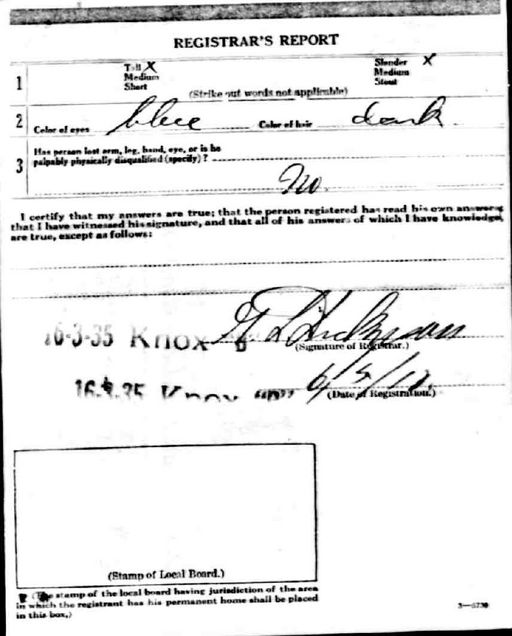 REGISTRAR'S REPORT
1 Tall X Slender X
Medium Medium
Short Stout
(Strike out words not applicable)
2 Color of eyes blue Color of hair dark
Has person lost arm, leg, hand, eye, or is he
3 palpably physically disqualified (specify)?
No.
I certify that my answers are true; that the person registered has read his own answers;
that I have witnessed his signature, and that all of his answers of which I have knowledge
are true, except as follows:
16-3-35 Knox
(Signature of Registrar.)
16-3-35 Knox "D" 6/5/17.
(Date of Registration.)
(Stamp of Local Board.)
(The stamp of the local board having jurisdiction of the area
in which the registrant has his permanent home shall be placed
in this box.)